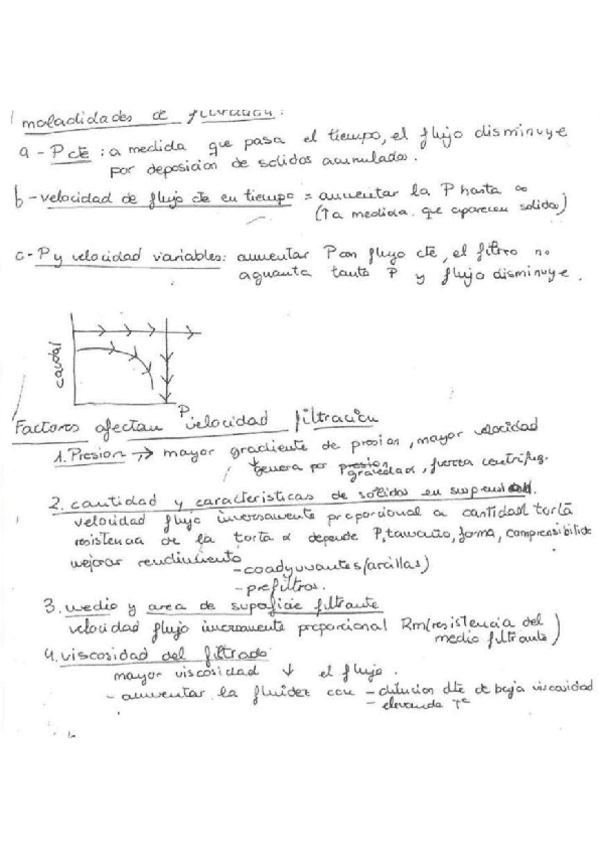 modalidades de filtración:
a - P cte : a medida que pasa el tiempo, el flujo disminuye
por deposicion de solidos acumulados.
b - velocidad de flujo cte en tiempo = aumentar la P hasta ∞
(↑ a medida que aparecen solidos)
c - P y velocidad variables: aumentar P con flujo cte, el filtro no
aguanta tanta P y flujo disminuye.
caudal
P
Factores afectan velocidad filtración
1. Presion → mayor gradiente de presion, mayor velocidad
↓ genera por presion, gravedad, fuerza centrífug.
2. cantidad y caracteristicas de solidos en suspensión.
velocidad flujo inversamente proporcional a cantidad torta
resistencia de la torta α depende P, tamaño, forma, compresibilide
mejorar rendimiento
- coadyuvantes (arcillas)
- prefiltros.
3. medio y area de superficie filtrante
velocidad flujo inversamente proporcional Rm (resistencia del
medio filtrante)
4. viscosidad del filtrado
mayor viscosidad ↓ el flujo.
- aumentar la fluidez con - dilucion dte de baja viscosidad
- elevando Tª